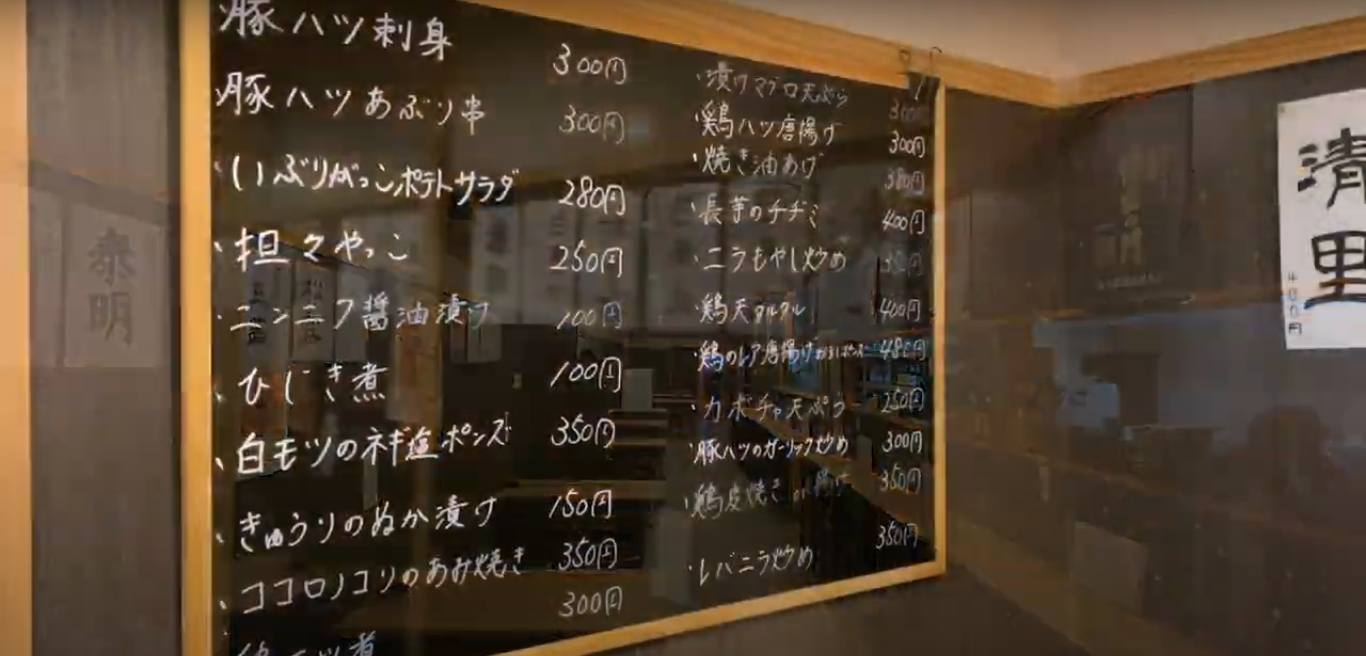 豚ハツ刺身 300円
豚ハツあぶり串 300円
・いぶりがっこポテトサラダ 280円
・担々やっこ 250円
・ニンニク醤油漬け 100円
・ひじき煮 100円
・白モツのネギ塩ポンズ 350円
・きゅうりのぬか漬け 150円
・ココロノコリのあみ焼き 350円
300円
・漬けマグロ天ぷら 300
・鶏ハツ唐揚げ 300円
・焼き油あげ 380円
・長芋のチヂミ 400円
・ニラもやし炒め 350円
・鶏天タルタル 400円
・鶏のレア唐揚げ 480円
・カボチャ天ぷら 250円
・豚ハツのガーリック炒め 300円
・鶏皮焼き 揚げ 350円
・レバニラ炒め 350円
清里
泰明